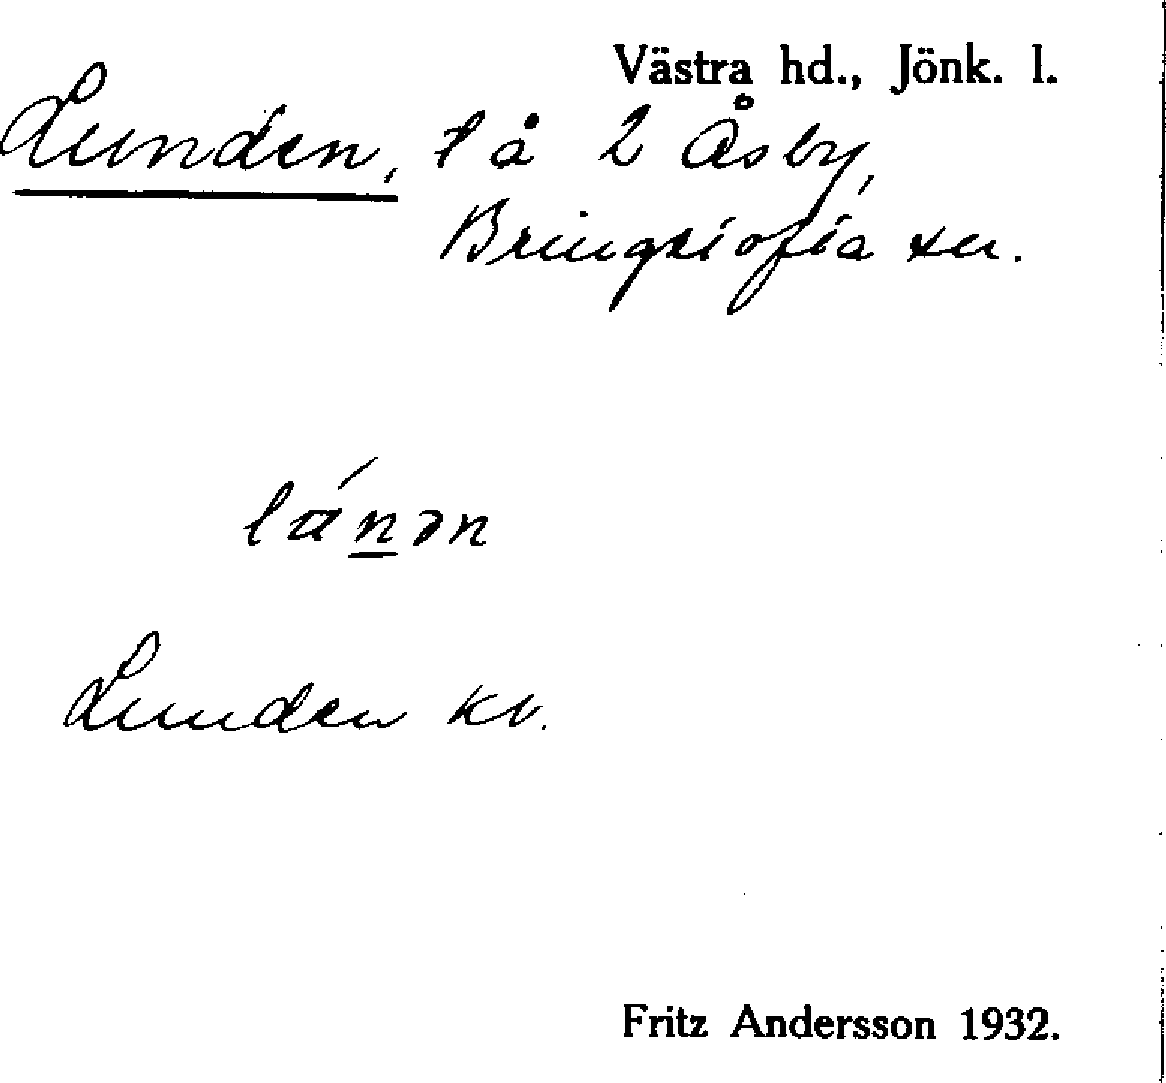 Västra hd., Jönk. l.
Lunden, lå 2 Åsby,
Bringetofta sn.
Lunden kv.
Fritz Andersson 1932.